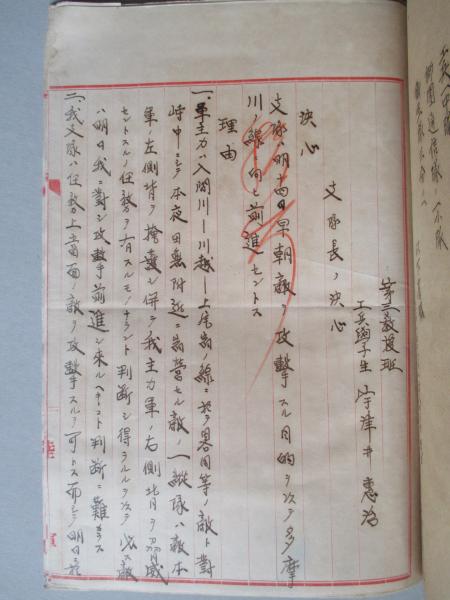 第三教授班
工兵絢子生 宇津井惠治
支隊長ノ決心
決心
支隊ハ明十四日早朝敵ヲ攻擊スル目的ヲ以テ多摩
川ノ線ニ向ヒ前進セントス
理由
一、軍主力ハ入間川―川越―上尾宿ノ線ニ於テ畧同等ノ敵ト對
峙中ニシテ本夜田無附近ニ宿營セル敵ノ一縱隊ハ敵本
軍ノ左側背ヲ掩護シ併セテ我主力軍ノ右側背ヲ脅威
セントスルノ任務ヲ有スルモノナラント判斷シ得ラルルヲ以テ此敵
ハ明日我ニ對シ攻擊前進シ來ルヘキコト判斷ニ難カラス
二、我支隊ハ任務上當面ノ敵ヲ攻擊スルヲ可トス而シテ明日於